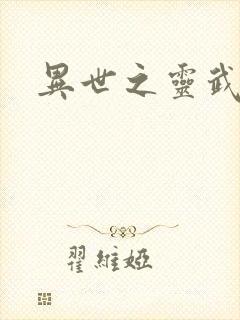 異世之靈武
翟維婭